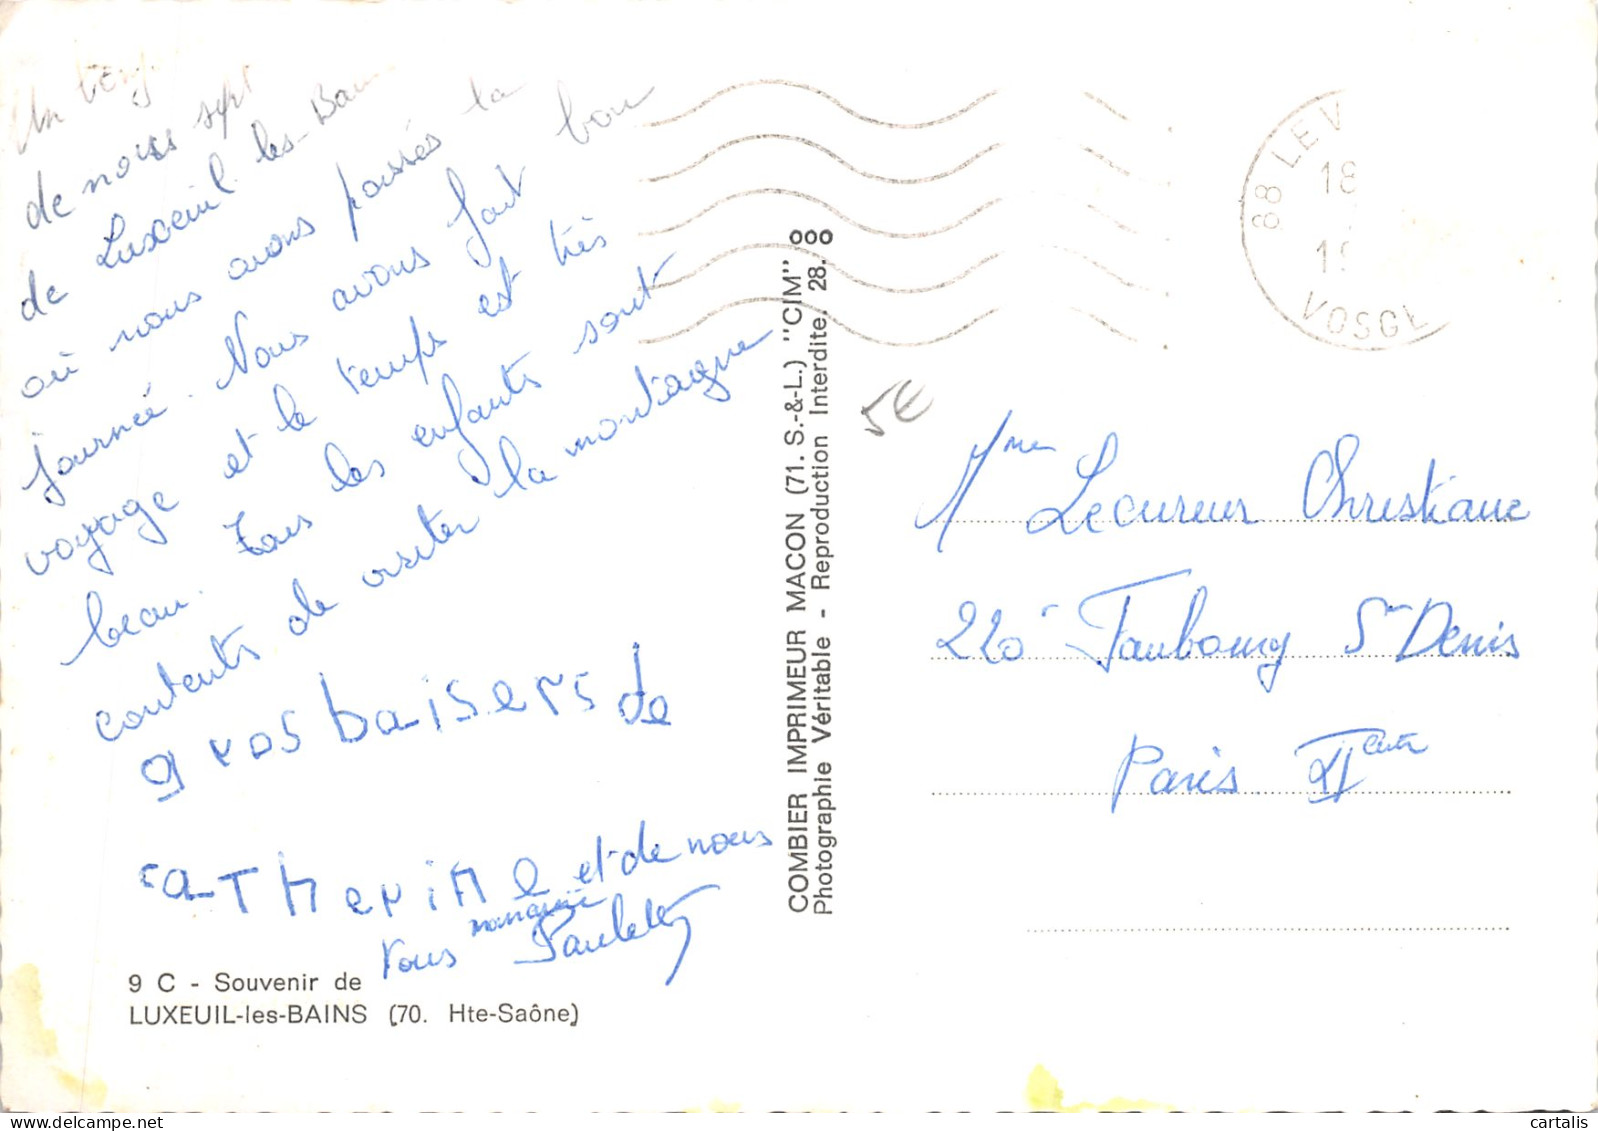 de nous sept
de Luxeuil les-Bain
où nous avons passés la
journée. Nous avons fait bon
voyage et le temps est très
beau. Tous les enfants sont
contents de visiter la montagne
gros baisers de
catherine et de nous
tous
Paulette
9 C - Souvenir de
LUXEUIL-les-BAINS (70. Hte-Saône)
COMBIER IMPRIMEUR MACON (71. S.-&-L.) "CIM"
Photographie Véritable - Reproduction Interdite. 28.
88 LE V
18
19
VOSGE
5€
Mme Lecureur Christiane
220 Faubourg St Denis
Paris
cartalis